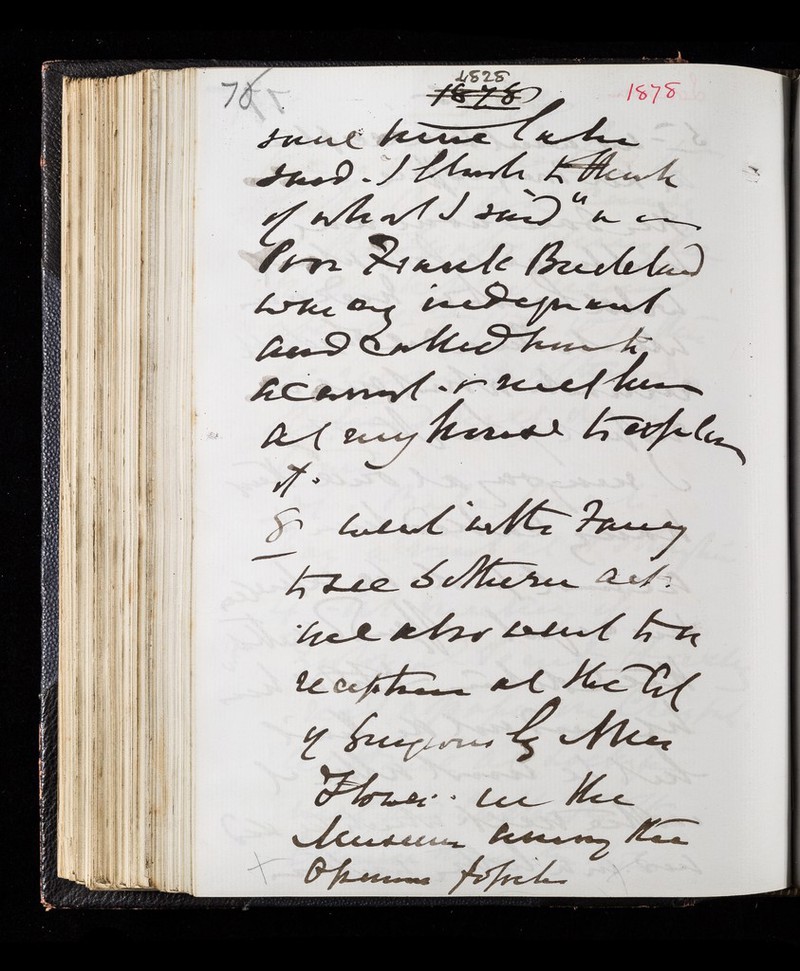 78
1828
1878
1878
some time later
said. I blush to think
of what I said "
Poor Frank Buckland
was indignant
and called him to
account. & met him
at my house to explain
it.
8 went with Fanny
to see Sothern act.
we also went to a
reception at the Col
of Surgeons by Mrs
Flower. in the
Museum among the
fossils